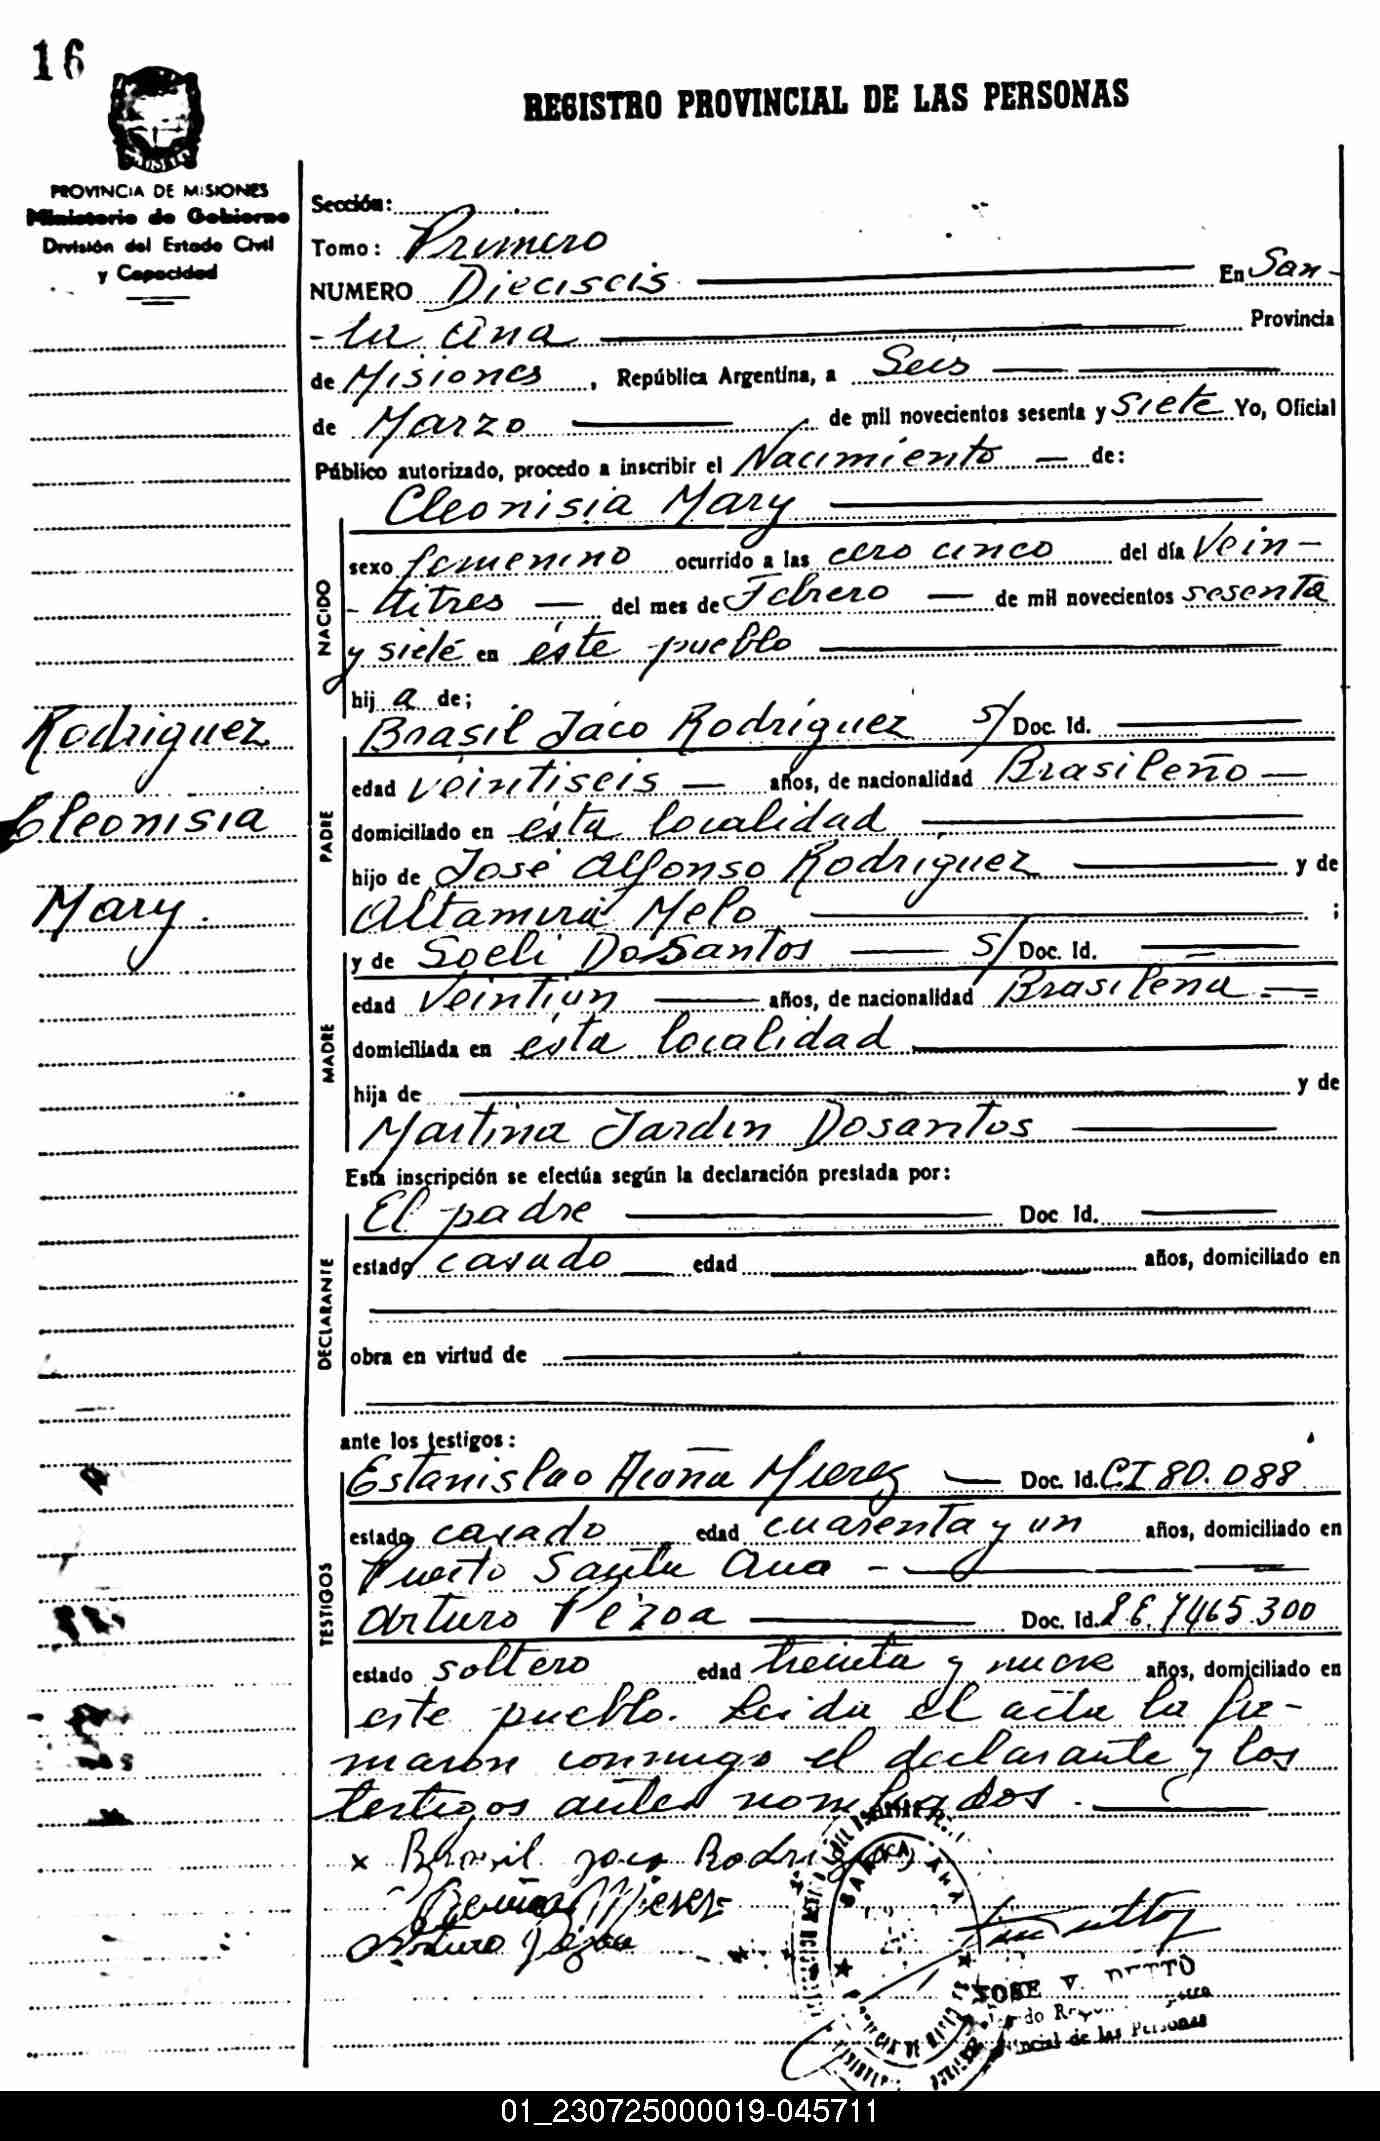 16
REGISTRO PROVINCIAL DE LAS PERSONAS
PROVINCIA DE MISIONES
Ministerio de Gobierno
División del Estado Civil
y Capacidad
Sección:
Tomo: Primero
NUMERO Dieciseis En San-
-ta Ana Provincia
de Misiones, República Argentina, a Seis
de Marzo de mil novecientos sesenta y siete Yo, Oficial
Público autorizado, procedo a inscribir el Nacimiento de:
Cleonisia Mary
NACIDO
sexo femenino ocurrido a las cero cinco del día Vein-
-titres del mes de Febrero de mil novecientos sesenta
y siete en éste pueblo
hij a de;
Rodriguez
Cleonisia
Mary.
PADRE
Brasil Jaco Rodríguez s/ Doc. Id.
edad veintiseis años, de nacionalidad Brasileño
domiciliado en ésta localidad
hijo de José Alfonso Rodríguez y de
Altamira Melo ;
MADRE
y de Soeli DoSantos s/ Doc. Id.
edad Veintiun años, de nacionalidad Brasileña
domiciliada en ésta localidad
hija de y de
Martina Jardin Dosantos
Esta inscripción se efectúa según la declaración prestada por:
DECLARANTE
El padre Doc Id.
estado casado edad años, domiciliado en
obra en virtud de
ante los testigos:
TESTIGOS
Estanislao Acuña Mierez Doc. Id. CI 80.088
estado casado edad cuarenta y un años, domiciliado en
Puerto Santa Ana
Arturo Pezoa Doc. Id. 7465.300
estado soltero edad treinta y nueve años, domiciliado en
este pueblo. Leida el acta la fir-
maron conmigo el declarante y los
testigos antes nombrados.
x Brasil Jaco Rodri
Acuña Mierez
Arturo Pezoa
SANTA ANA
JOSE V. DETTO
Provincial de las Personas
01_230725000019-045711